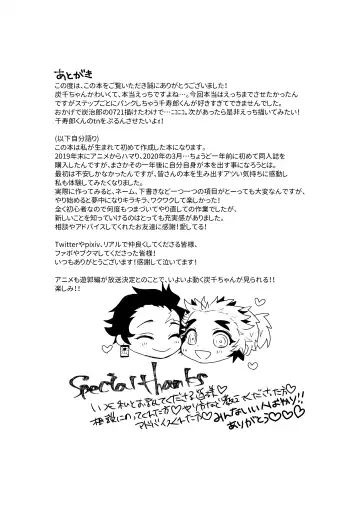 あとがき
この度は、この本をご覧いただき誠にありがとうございました！
炭千ちゃんかわいくて、本当えっちですよね…。今回本当はえっちまでさせたかったん
ですがステップごとにパンクしちゃう千寿郎くんが好きすぎてできませんでした。
おかげで炭治郎の0721描けたわけで…ﾆﾆﾆ。次があったら是非えっち描いてみたい！
千寿郎くんのtnをぷるんさせたいよぉ！
(以下自分語り)
この本は私が生まれて初めて作成した本になります。
2019年末にアニメからハマり、2020年の3月…ちょうど一年前に初めて同人誌を
購入したんですが、まさかその一年後に自分自身が本を出す事になろうとは。
最初は不安しかなかったんですが、皆さんの本を生み出すアツい気持ちに感動し
私も体験してみたくなりました。
実際に作ってみると、ネーム、下書きなど一つ一つの項目がとーっても大変なんですが、
やり始めると夢中になりキラキラ、ワクワクして楽しかった！
全く初心者なので何度もつまづいてやり直しての作業でしたが、
新しいことを知っていけるのはとっても充実感がありました。
相談やアドバイスしてくれたお友達に感謝！愛してる！
Twitterやpixiv、リアルで仲良くしてくださる皆様、
ファボやブクマしてくださった皆様！
いつもありがとうございます！感謝して泣いてます！
アニメも遊郭編が放送決定とのことで、いよいよ動く炭千ちゃんが見られる！！
楽しみ！！
Special thanks
いつも私とお話してくださる皆様♡
相談にのってくれた方♡やり方など教えてくださった方♡
アドバイスくれた方♡みんないい人ばかり!!
ありがとう♡♡♡